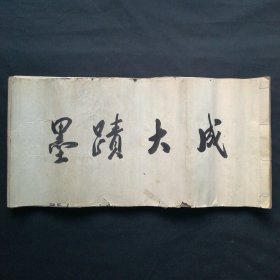 墨蹟大成